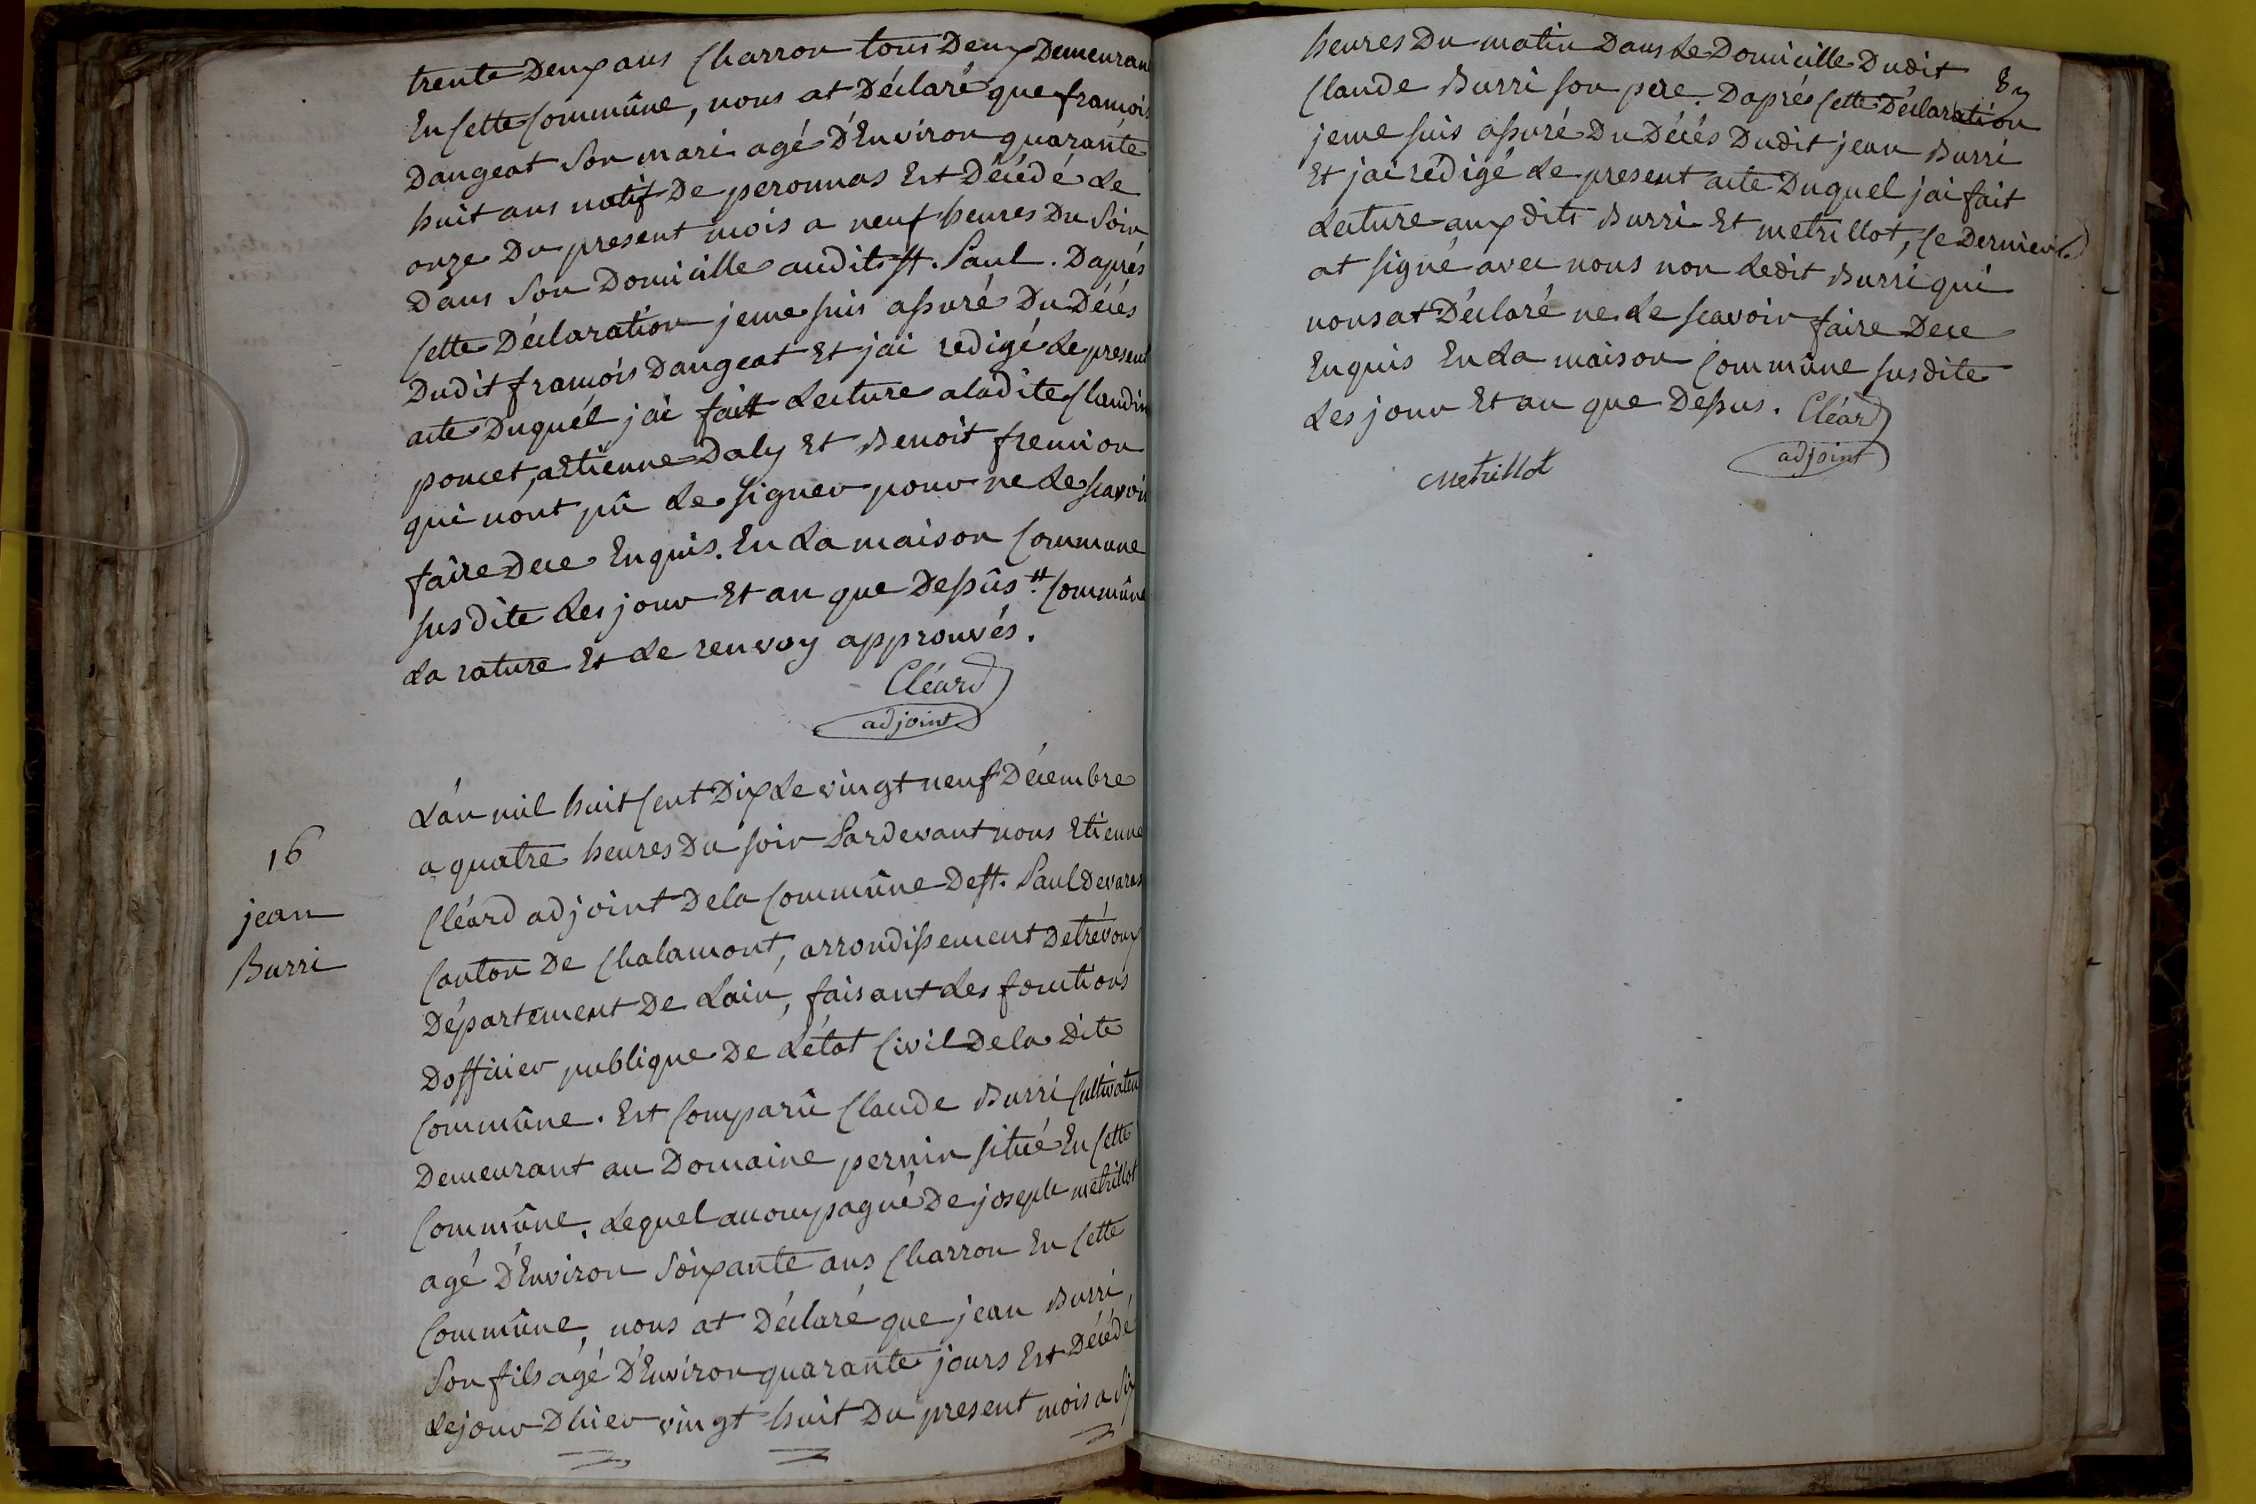 trente Deux ans Charron tous Deux Demeuran
En Cette Commûne, nous at Déclaré que françois
Dangeat Son mari agé D'Environ quarante
huit ans natif De peronnas Est Décédé Le
onze Du present mois a neuf heures Du Soir
Dans Son Domicille audit St. Paul. Daprés
Cette Déclaration jeme suis assuré Du Décés
Dudit françois Dangeat Et jai redigé Le present
acte Duquél jai fait Lecture aladite Claudin
poncet, aEtienne Daly Et Benoit fremion
qui nont pû Le Signer pour ne Le scavoir
faire Dece Enquis. En La maison Commune
susdite Les jour Et an que Dessûs." Commûne
La rature Et Le renvoy approuvés.
Cléard
adjoint
16
jean
Burri
L'an mil huit Cent Dix Le vingt neuf Décembre
a quatre heures Du soir Pardevant nous Etienne
Cléard adjoint Dela Commûne De St. Paul Devaras
Canton De Chalamont, arrondissement Detrévoux
Département De Lain, faisant Les fonctions
Dofficier publique De L'état Civil Dela Dite
Commûne. Est Comparû Claude Burri Cultivateur
Demeurant au Domaine pernin situé En Cette
Commûne. Lequel accompagné De joseph metrillot
agé D'Environ Soixante ans Charron En Cette
Commûne, nous at Déclaré que jean Burri,
Son fils agé D'Environ quarante jours Est Décédé
Lejour Dhier vingt huit Du present mois a Six
heures Du matin Dans Le Domicille Dudit
Claude Burri son pere. Daprés Cette Déclaration
jeme suis assuré Du Décés Dudit jean Burri
Et jai rédigé Le present acte Duquel jai fait
Lecture aux dits Burri Et metrillot, Ce Dernier
at signé avec nous non Ledit Burri qui
nousat Déclaré ne Le scavoir faire Dece
Enquis En La maison Commûne susdite
Les jour Et an que Dessus. Cléard
adjoint
Metrillot